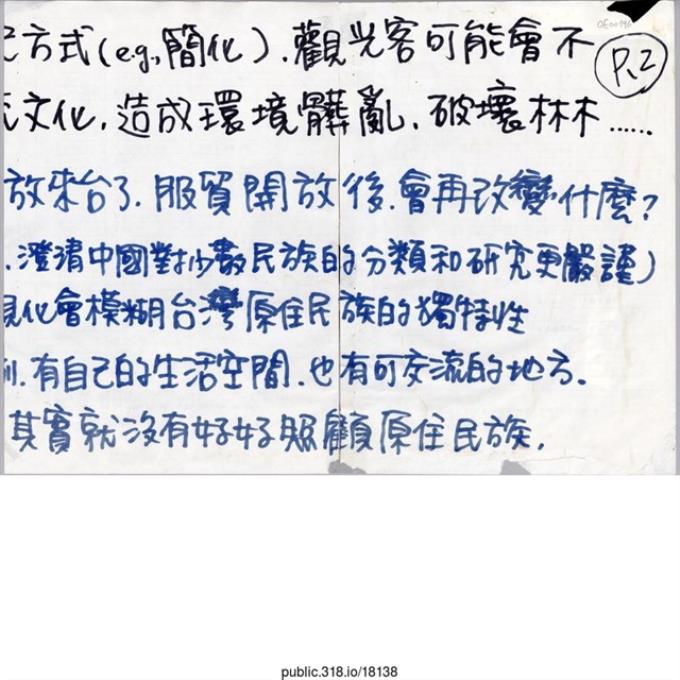 方式(e.g.,簡化).觀光客可能會不
P.2
文化.造成環境髒亂.破壞林木......
放來台了.服貿開放後.會再改變什麼?
.澄清中國對少數民族的分類和研究更嚴謹)
化會模糊台灣原住民族的獨特性
.有自己的生活空間.也有可交流的地方.
其實就沒有好好照顧原住民族.
public.318.io/18138